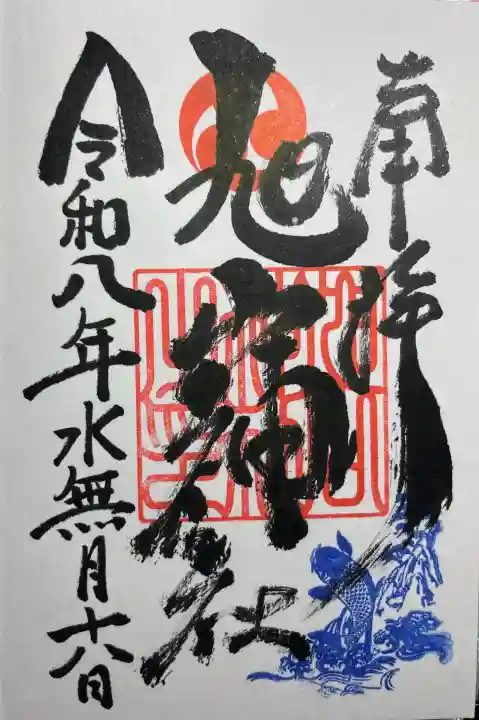 奉拝
旭
神社
令和八年水無月十八日